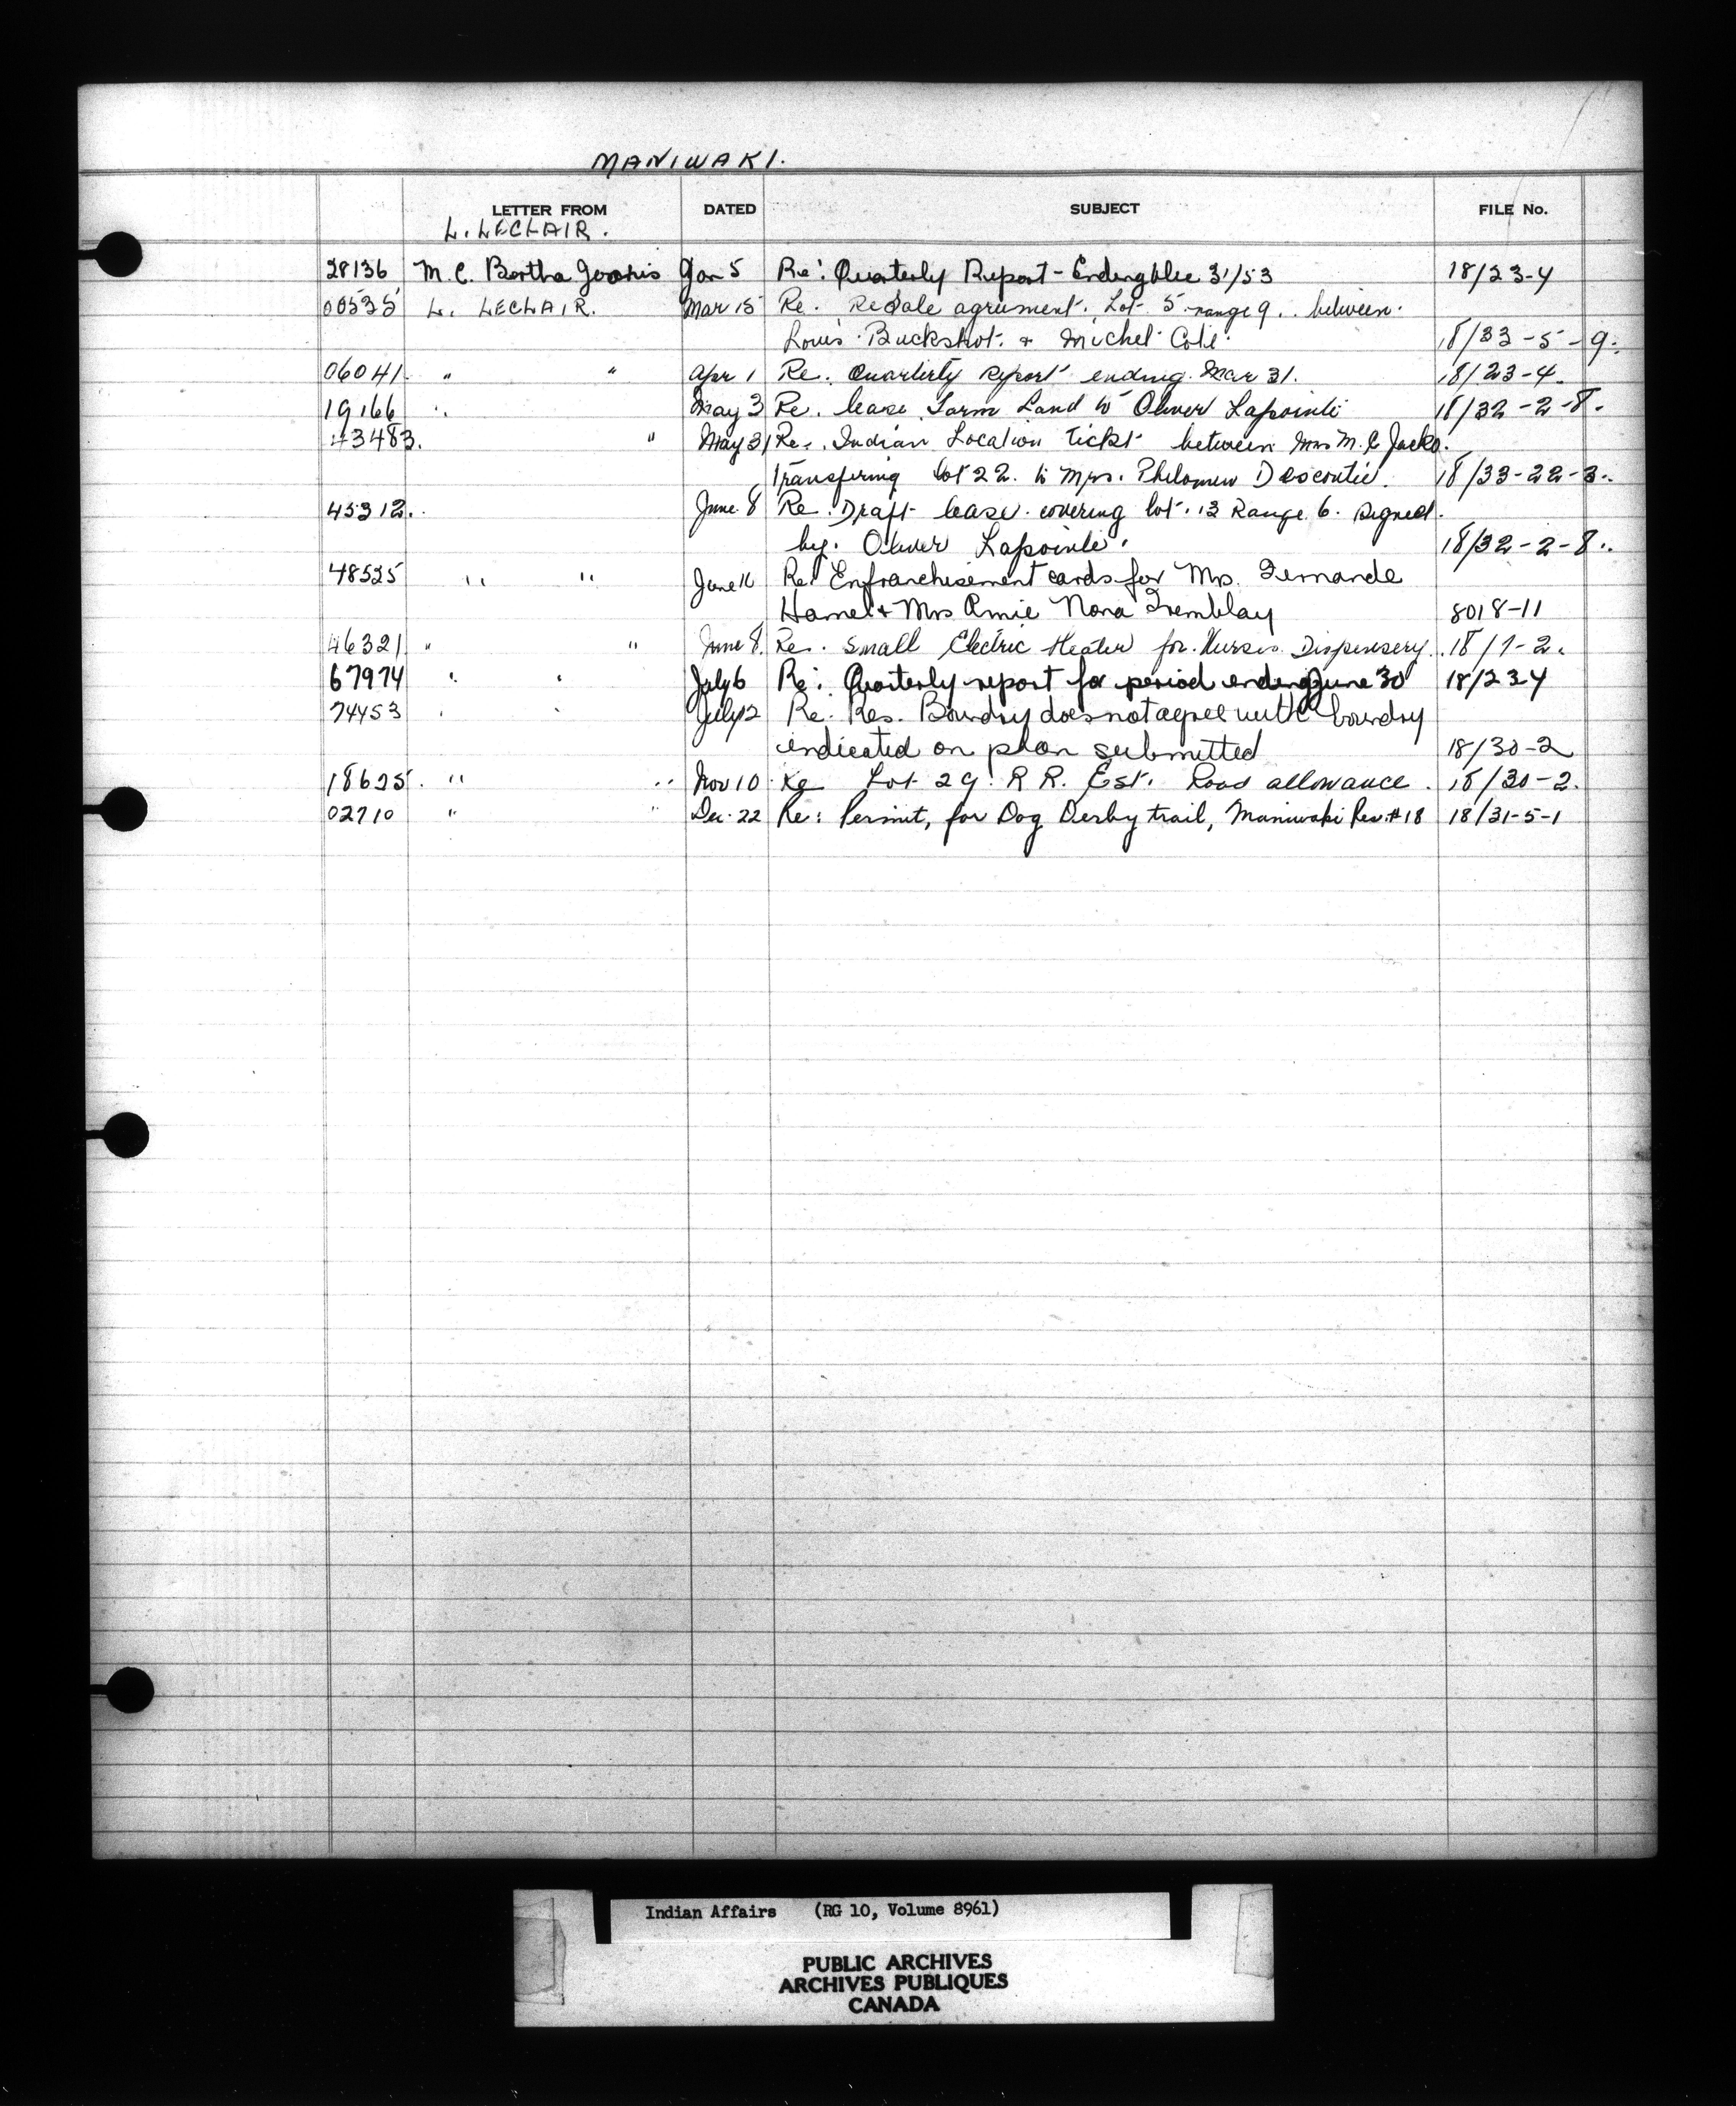 MANIWAKI.
LETTER FROM DATED SUBJECT FILE No.
L. LECLAIR.
28136 M. C. Bertha Jan 5 Re: Quarterly Report - Ending 31/53 18/23-4
00535 L. LECLAIR. Mar 15 Re. Resale agrument. Lot 5 range 9. between.
Louis Buckshot. & Michel Coté. 18/33-5-9.
06041. " " Apr 1 Re. Quarterly report ending. Mar 31. 18/23-4.
19166 " May 3 Re. lease Farm Land to Oliver Lapointe 18/32-2-8.
43483. " May 31 Re. Indian Location Ticket between Mrs M. Jacko.
Transfering lot 22. to Mrs. Philomen 18/33-22-3.
45312. June 8 Re. Draft lease covering lot. 13 Range 6. signed.
by. Oliver Lapointe. 18/32-2-8.
48525 " " June 16 Re: Enfranchisement cards for Mrs. Fernande
Hamel & Mrs Amie Nora Tremblay 8018-11
46321 " " June 8. Re. Small Electric Heater for Nurses Dispensery. 18/7-2.
67974 " " July 6 Re: Quarterly report for period ending June 30 18/23-4
74453 " " July 12 Re. Res. Boundry does not agree with boundry
indicated on plan submitted 18/30-2
18625. " " Nov 10 Re Lot 29. R R. Est. Road allowance. 18/30-2.
02710 " " Dec. 22 Re: Permit, for Dog Derby trail, Maniwaki Res. #18 18/31-5-1
Indian Affairs (RG 10, Volume 8961)
PUBLIC ARCHIVES
ARCHIVES PUBLIQUES
CANADA